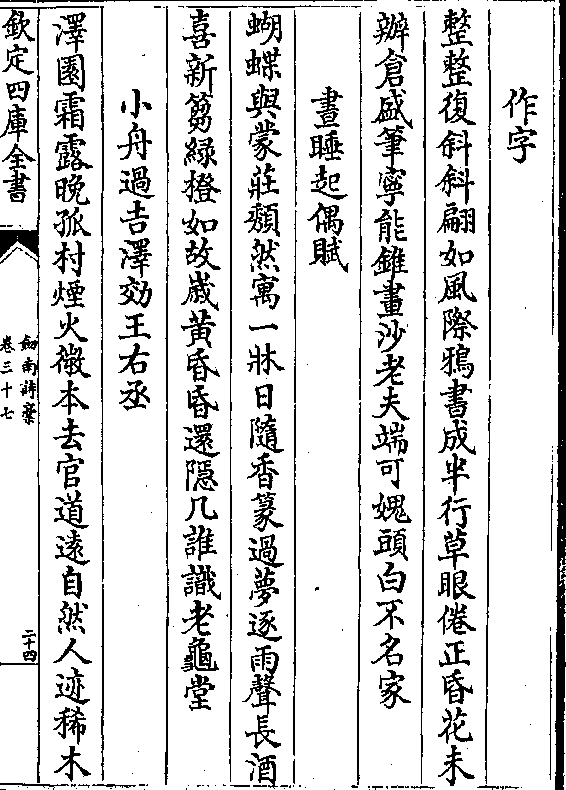 作字
整整復斜斜翩如風際鴉書成半行草眼倦正昏花未
辦倉盛筆寧能錐畫沙老夫端可媿頭白不名家
晝睡起偶賦
蝴蝶與蒙莊頽然寓一牀日隨香篆過夢逐雨聲長酒
喜新篘綠橙如故嵗黃昏昏還隱几誰識老龜堂
小舟過吉澤効王右丞
澤國霜露晚孤村煙火微本去官道遠自然人迹稀木
欽定四庫全書
劒南詩稾
卷三十七
二十四